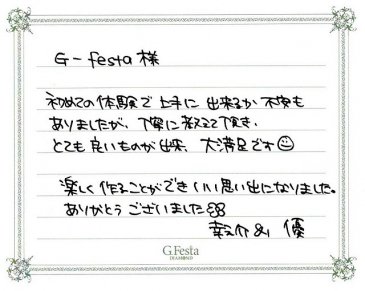 G-festa様
初めての体験で上手に出来るか不安も
ありましたが、丁寧に教えて頂き、
とても良いものが出来、大満足です
楽しく作ることができいい思い出になりました。
ありがとうございました
幸介 & 優
G.Festa
DIAMOND